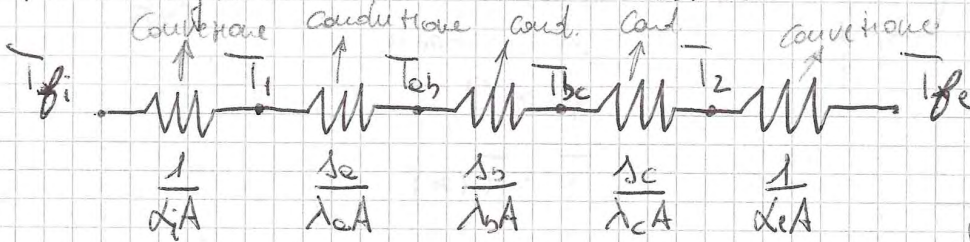 Convezione conduzione cond. Cond. convezione
T_fi T_1 T_ab T_bc T_2 T_fe
1/(α_i A) s_a/(λ_a A) s_b/(λ_b A) s_c/(λ_c A) 1/(α_e A)